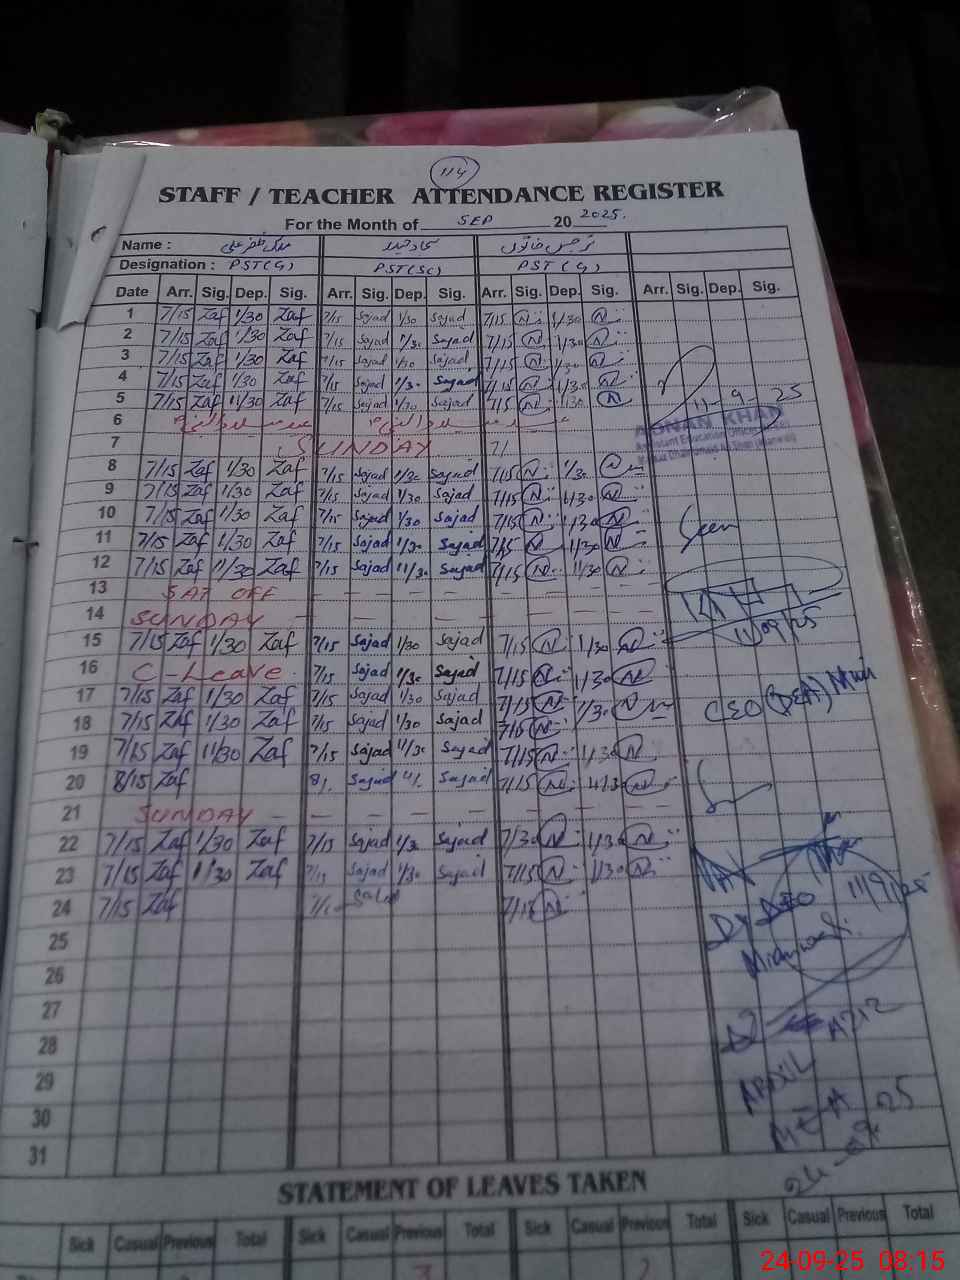 114
STAFF / TEACHER ATTENDANCE REGISTER
For the Month of SEP 20 2025.
Name : ملک ظفر علی سجاد حیدر نرجس خاتون
Designation : PST(G) PST(SC) PST(G)
Date Arr. Sig. Dep. Sig. Arr. Sig. Dep. Sig. Arr. Sig. Dep. Sig. Arr. Sig. Dep. Sig.
1 7/15 Zaf 1/30 Zaf 7/15 Sajad 1/30 Sajad 7/15 N 1/30 N
2 7/15 Zaf 1/30 Zaf 7/15 Sajad 1/30 Sajad 7/15 N 1/30 N
3 7/15 Zaf 1/30 Zaf 7/15 Sajad 1/30 Sajad 7/15 N 1/30 N
4 7/15 Zaf 1/30 Zaf 7/15 Sajad 1/30 Sajad 7/15 N 1/30 N
5 7/15 Zaf 11/30 Zaf 7/15 Sajad 1/30 Sajad 7/15 N 11/30 N
11-9-25
6 عید میلاد النبی عید میلاد النبی
ADNAN KHAN
Assistant Education Officer
7 SUNDAY 7/
8 7/15 Zaf 1/30 Zaf 7/15 Sajad 1/30 Sajad 7/15 N 1/30 N
9 7/15 Zaf 1/30 Zaf 7/15 Sajad 1/30 Sajad 7/15 N 1/30 N
10 7/15 Zaf 1/30 Zaf 7/15 Sajad 1/30 Sajad 7/15 N 1/30 N
11 7/15 Zaf 1/30 Zaf 7/15 Sajad 1/30 Sajad 7/15 N 1/30 N Seen
12 7/15 Zaf 11/30 Zaf 7/15 Sajad 11/30 Sajad 7/15 N 11/30 N
13 SAT OFF
14 SUNDAY
11/09/25
15 7/15 Zaf 1/30 Zaf 7/15 Sajad 1/30 Sajad 7/15 N 1/30 N
16 C-Leave 7/15 Sajad 1/30 Sajad 7/15 N 1/30 N
17 7/15 Zaf 1/30 Zaf 7/15 Sajad 1/30 Sajad 7/15 N 1/30 N CEO (DEA) Mwi
18 7/15 Zaf 1/30 Zaf 7/15 Sajad 1/30 Sajad 7/15 N
19 7/15 Zaf 11/30 Zaf 7/15 Sajad 11/30 Sajad 7/15 N 1/30 N
20 8/15 Zaf 8/. Sajad 4/. Sajad 7/15 N N
21 SUNDAY
22 7/15 Zaf 1/30 Zaf 7/15 Sajad 1/30 Sajad 7/30 N 1/30 N
23 7/15 Zaf 11/30 Zaf 7/15 Sajad 1/30 Sajad 7/15 N 1/30 N
24 7/15 Zaf Sajad 7/15 N
Dy DEO 11/9/25
25
Mianwali.
26
27
28
29
30
MEA
31
24-09-25
STATEMENT OF LEAVES TAKEN
Sick Casual Previous Total Sick Casual Previous Total Sick Casual Previous Total Sick Casual Previous Total
24-09-25 08:15